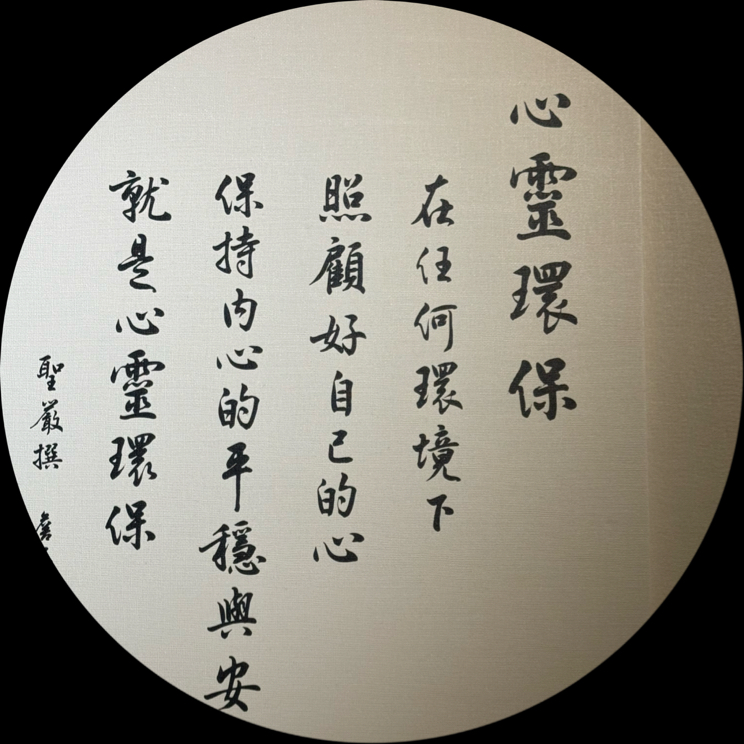 心靈環保
在任何環境下
照顧好自己的心
保持內心的平穩與安
就是心靈環保
聖嚴撰